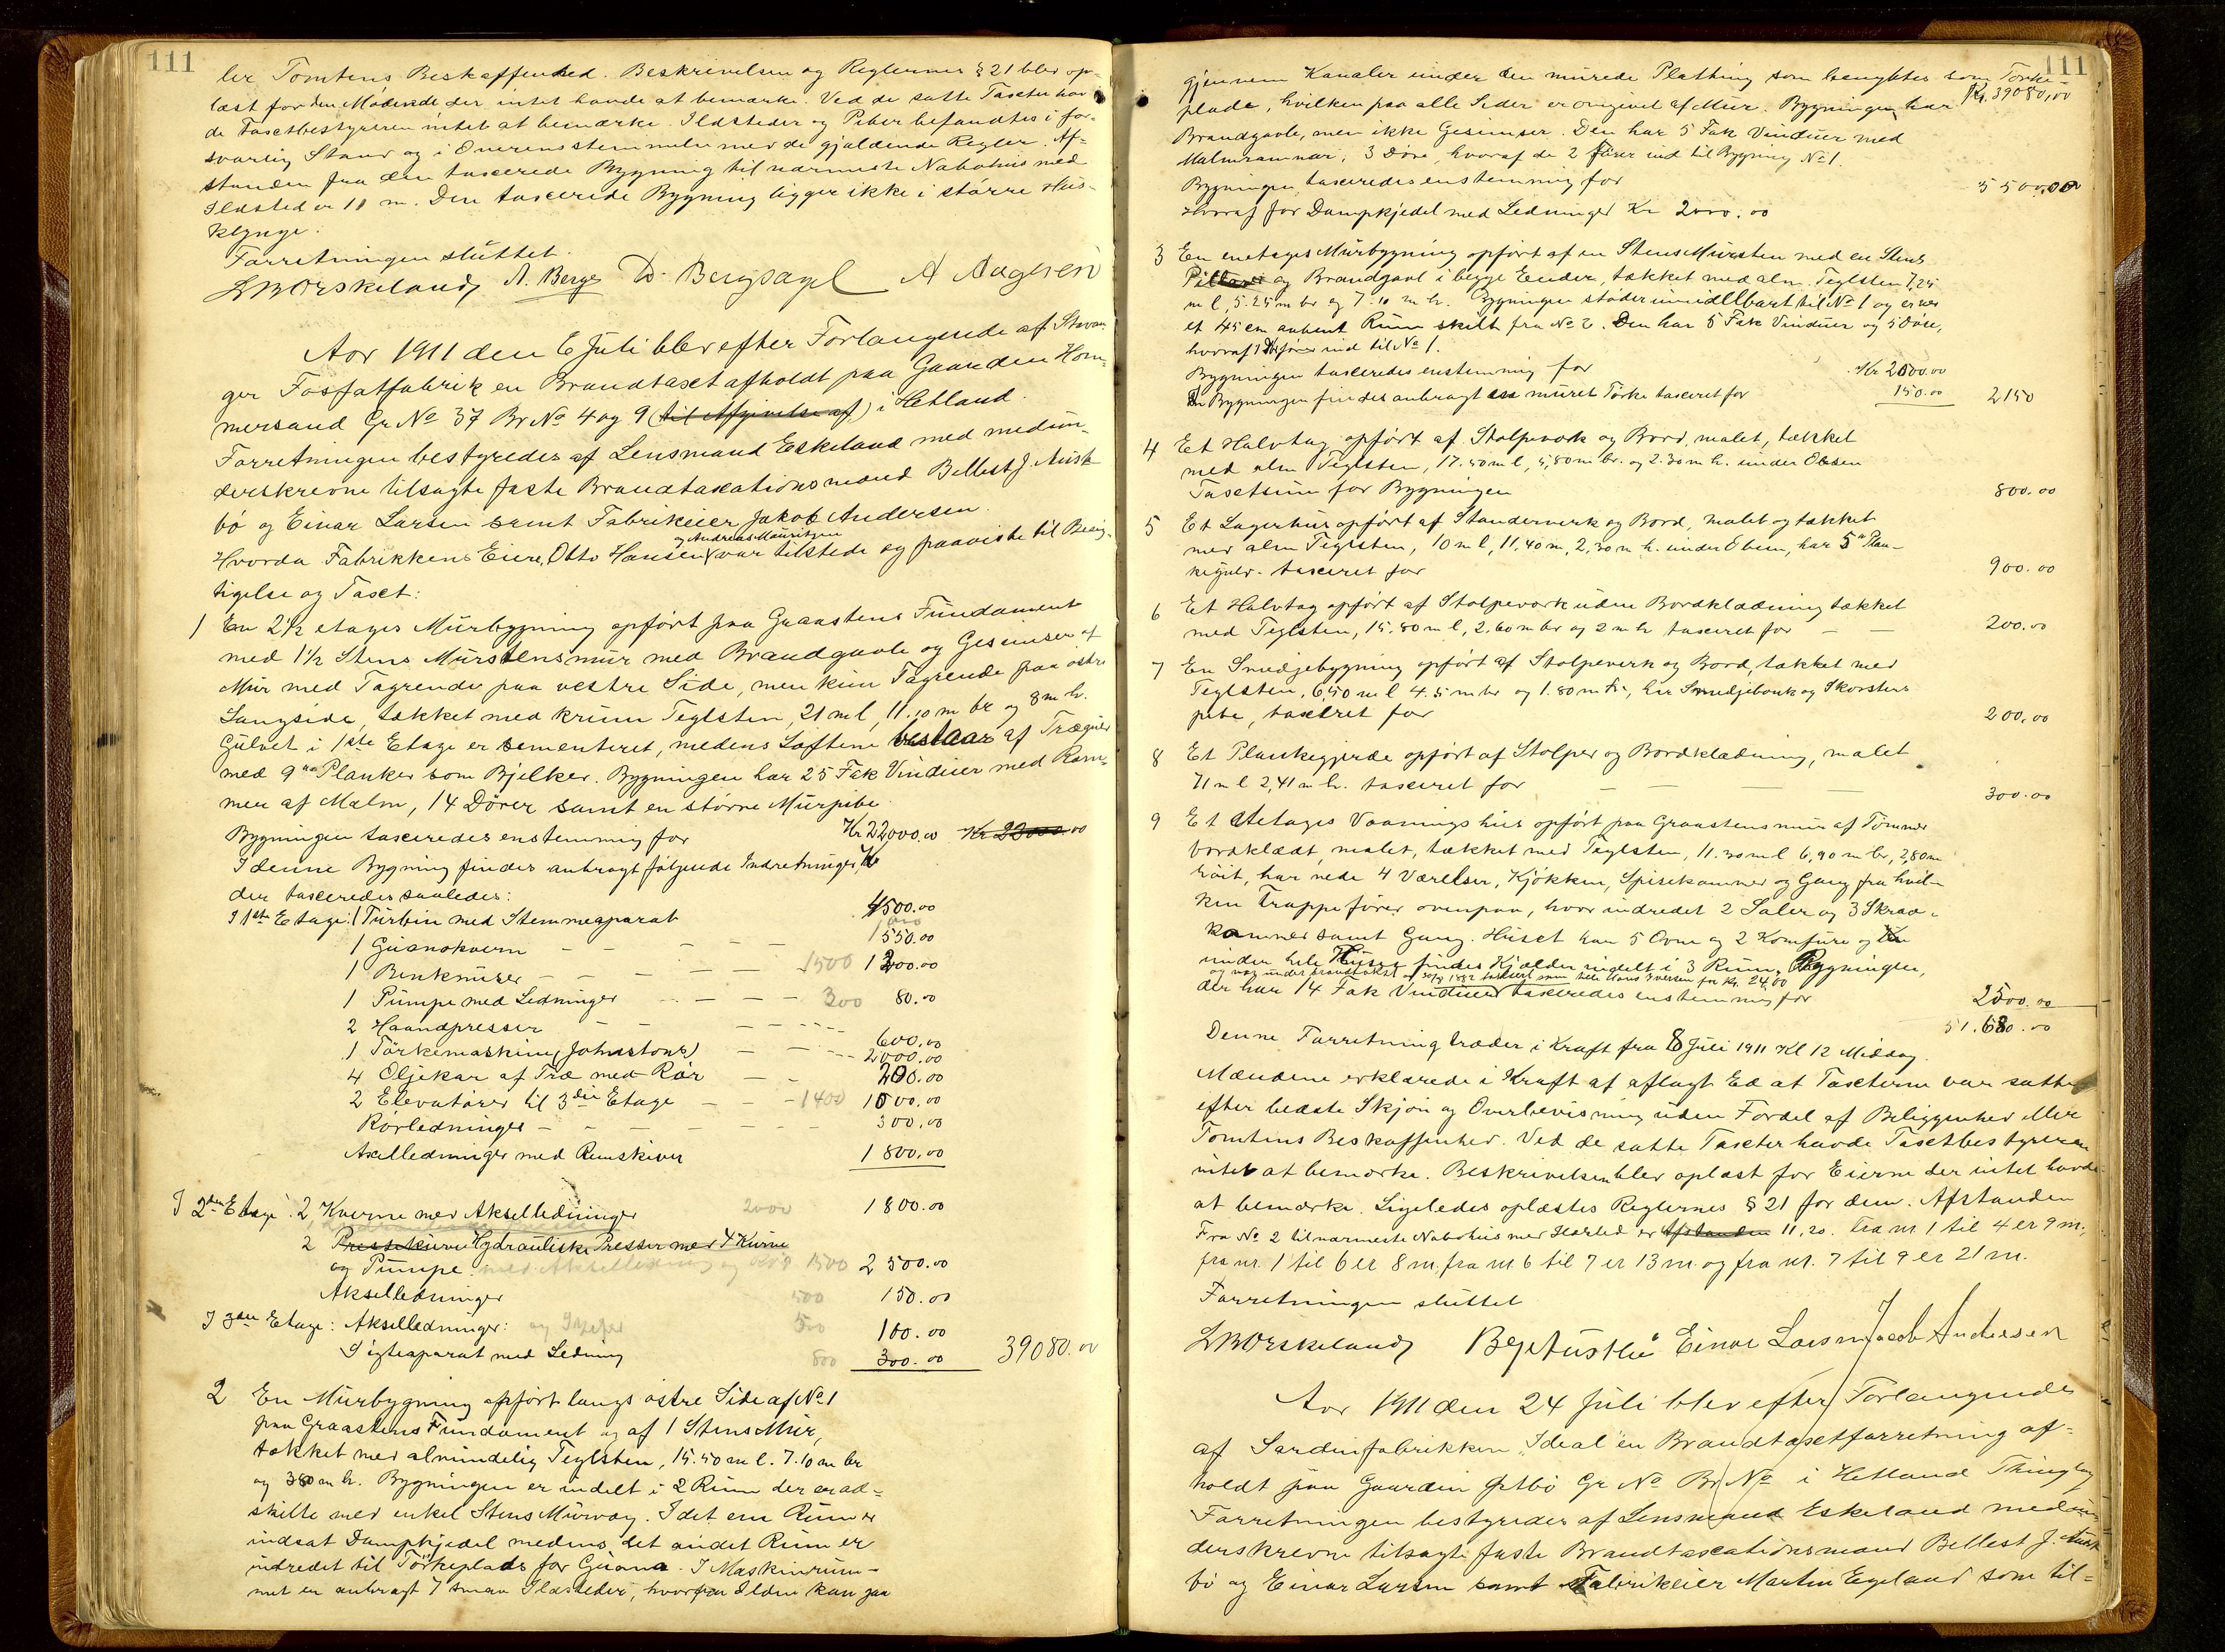 111
ler Tomtens Beskaffenhed. Beskrivelsen og Reglernes § 21 blev op-
læst for den Mødende der intet havde at bemærke. Ved de satte Taxter hav-
de Taxtbestyreren intet at bemærke. Ildsteder og Piber befandtes i for-
svarlig Stand og i Overensstemmelse med de gjældende Regler. Af-
standen fra den taxerede Bygning til nærmeste Nabohus med
Ildsted er 11 m. Den taxerede Bygning ligger ikke i større Hus-
klynge.
Forretningen sluttet.
A. Berge D. Bergsagel A Aagesen
Aar 1911 den 6 Juli blev efter Forlangende af Stavan-
ger Fosfatfabrik en Brandtaxt afholdt paa Gaarden Hom-
mersand Gr No 37 Br No 4 og 9 (til Afgivelse af) i Hetland.
Forretningen bestyredes af Lensmand Eskeland med medun-
derskrevne tilsagte faste Brandtaxationsmænd Bellest J. Aust-
bø og Einar Larsen samt Fabrikeier Jakob Andersen.
og Andreas Mauritzen
Hvorda Fabrikkens Eiere, Otto Hansen var tilstede og paaviste til Besig-
tigelse og Taxt:
1 En 2½ etages Murbygning opført paa Graastens Fundament
med 1½ Stens Murstensmur med Brandgavle og Gesimser af
Mur med Tagrende paa vestre Side, men kun Tagrende paa østre
Langside, tækket med krum Teglsten, 21 m l, 11.10 m br og 8 m h.
Gulvet i 1ste Etage er sementeret, medens Loftene bestaar af Trægulv
med 9" Planker som Bjelker. Bygningen har 25 Fak Vinduer med Ram-
mer af Malm, 14 Dører samt en større Murpibe.
Bygningen taxeredes enstemmig for Kr 22000.00 Kr 22000.00
I denne Bygning findes anbragt følgende Indretninger,
der taxeredes saaledes:
I 1ste Etage: 1 Turbin med Stemmeaparat 4500.00
1 Guanokvern 550.00
1 Benknuser 1500 1200.00
1 Pumpe med Ledninger 300 80.00
2 Haandpresser
1 Tørkemaskine (Johnstons) 600.00
4 Oljekar af Træ med Rør 2000.00
2 Elevatører til 3die Etage 200.00
Rørledninger 1400 1000.00
300.00
Axelledninger med Remskiver 1800.00
I 2den Etage: 2 Kverne med Akselledninger 2000 1800.00
2 Hydrauliske Presser med 4 Kurve
og Pumpe. med Akselledning og 1500 2500.00
Akselledninger 500 150.00
I 3die Etage: Akselledninger: 500 100.00
Sigteaparat med Ledning 800 300.00 39080.00
2 En Murbygning opført langs østre Side af No 1
paa Graastens Fundament og af 1 Stens Mur,
tækket med almindelig Teglsten, 15.50 m l. 7.10 m br
og 3.80 m h. Bygningen er indelt i 2 Rum der er ad-
skilte med enkel Stens Murvæg. I det ene Rum er
indsat Dampkjedel medens det andet Rum er
indredet til Tørkeplads for Guano. I Maskinrum-
met er anbragt 7 smaa Ildsteder, hvorfra Ilden kan gaa
111
gjennem Kanaler under den murede Platting som benyttes som Tørke-
plads, hvilken paa alle Sider er omgivet af Mur. Bygningen har Kr. 39080,00
Brandgavle, men ikke Gesimser. Den har 5 Fak Vinduer med
Malmrammer, 3 Døre, hvoraf de 2 fører ind til Bygning No 1.
Bygningen taxeredes enstemmig for 5500.00
Hvoraf for Dampkjedel med Ledninger Kr 2000.00
3 En enetages Murbygning opført af en Stens Mursten med en Stens
Pillarer og Brandgavl i begge Ender, tækket med alm. Teglsten 7,25
m l, 5.25 m br og 7.10 m h. Bygningen støder umidelbart til No 1 og er ved
et 45 cm aabent Rum skilt fra No 2. Den har 5 Fak Vinduer og 5 Døre,
hvoraf 1 Dør fører ind til No 1.
Bygningen taxeredes enstemmig for Kr 2000.00
I Bygningen findes anbragt en muret Tørke taxeret for 150.00 2150
4 Et Halvtag opført af Stolpeværk og Bord, malet, tækket
med alm Teglsten, 17.50 m l, 5,80 m br. og 2.30 m h. under Obsen
Taxtsum for Bygningen 800.00
5 Et Lagerhus opført af Standerverk og Bord, malet og tækket
med alm Teglsten, 10 m l, 11,40 m, 2,30 m h. under Obsen, har 5" Plan-
kegulv. taxeret for 900.00
6 Et Halvtag opført af Stolpeværk uden Bordklædning tækket
med Teglsten, 15.80 m l, 2,60 m br og 2 m h taxeret for 200.00
7 En Smedjebygning opført af Stolpeverk og Bord, tækket med
Teglsten, 6,50 m l 4.5 m br og 1.80 m h, har Smedjebænk og Skorstens
pibe, taxeret for 200,00
8 Et Plankegjerde opført af Stolper og Bordklædning, malet
71 m l 2,41 m h. taxeret for 300.00
9 Et etages Vaaningshus opført paa Graastensmur af Tømmer
bordklædt, malet, tækket med Teglsten, 11.30 m l 6,90 m br, 2,80 m
høit, har nede 4 Værelser, Kjøkken, Spisekammer og Gang fra hvil-
ken Trappe fører ovenpaa, hvor indredet 2 Saler og 3 Skraa-
kammer samt Gang. Huset har 5 Ovne og 2 Komfure og
under hele Huset findes Kjælder indelt i 3 Rum. Bygningen,
der har 14 Fak Vinduer taxeredes enstemmig for 2500.00
51.680.00
Denne Forretning træder i Kraft fra 8 Juli 1911 Kl 12 Middag.
Mændene erklærede i Kraft af aflagt Ed at Taxterne var satte
efter bedste Skjøn og Overbevisning uden Fordel af Beliggenhed eller
Tomtens Beskaffenhed. Ved de satte Taxter havde Taxtbestyreren
intet at bemærke. Beskrivelsen blev oplæst for Eierne der intet havde
at bemærke. Ligeledes oplæstes Reglernes § 21 for dem. Afstanden
Fra No 2 til nærmeste Nabohus med Ildsted er Afstanden 11,20. Fra nr. 1 til 4 er 9 m,
fra nr. 1 til 6 er 8 m. fra nr. 6 til 7 er 13 m. og fra nr. 7 til 9 er 21 m.
Forretningen sluttet
Einar Larsen Jacob Andersen
Aar 1911 den 24 Juli blev efter Forlangende
af Sardinfabrikken "Ideal" en Brandtaxtforretning af-
holdt paa Gaarden Østbø Gr No Br No i Hetland Thinglag
Forretningen bestyredes af Lensmand Eskeland med medun-
derskrevne tilsagte faste Brandtaxationsmænd Bellest J. Aust-
bø og Einar Larsen samt Fabrikeier Martin Egeland som til-